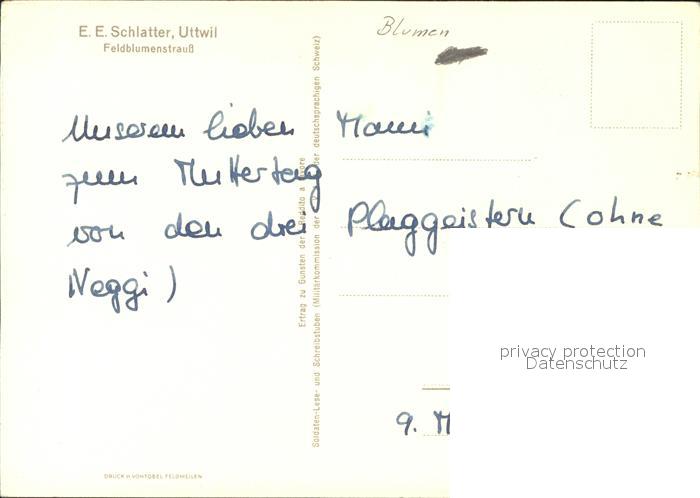 E. E. Schlatter, Uttwil
Feldblumenstrauß
Blumen
Unserem lieben Mami
zum Muttertag
von den drei Plaggeistern (ohne
Neggi)
Soldaten-Lese- und Schreibstuben (Militärkommission der der deutschsprachigen Schweiz)
Ertrag zu Gunsten der
9. M
privacy protection
Datenschutz
DRUCK H. VONTOBEL FELDMEILEN